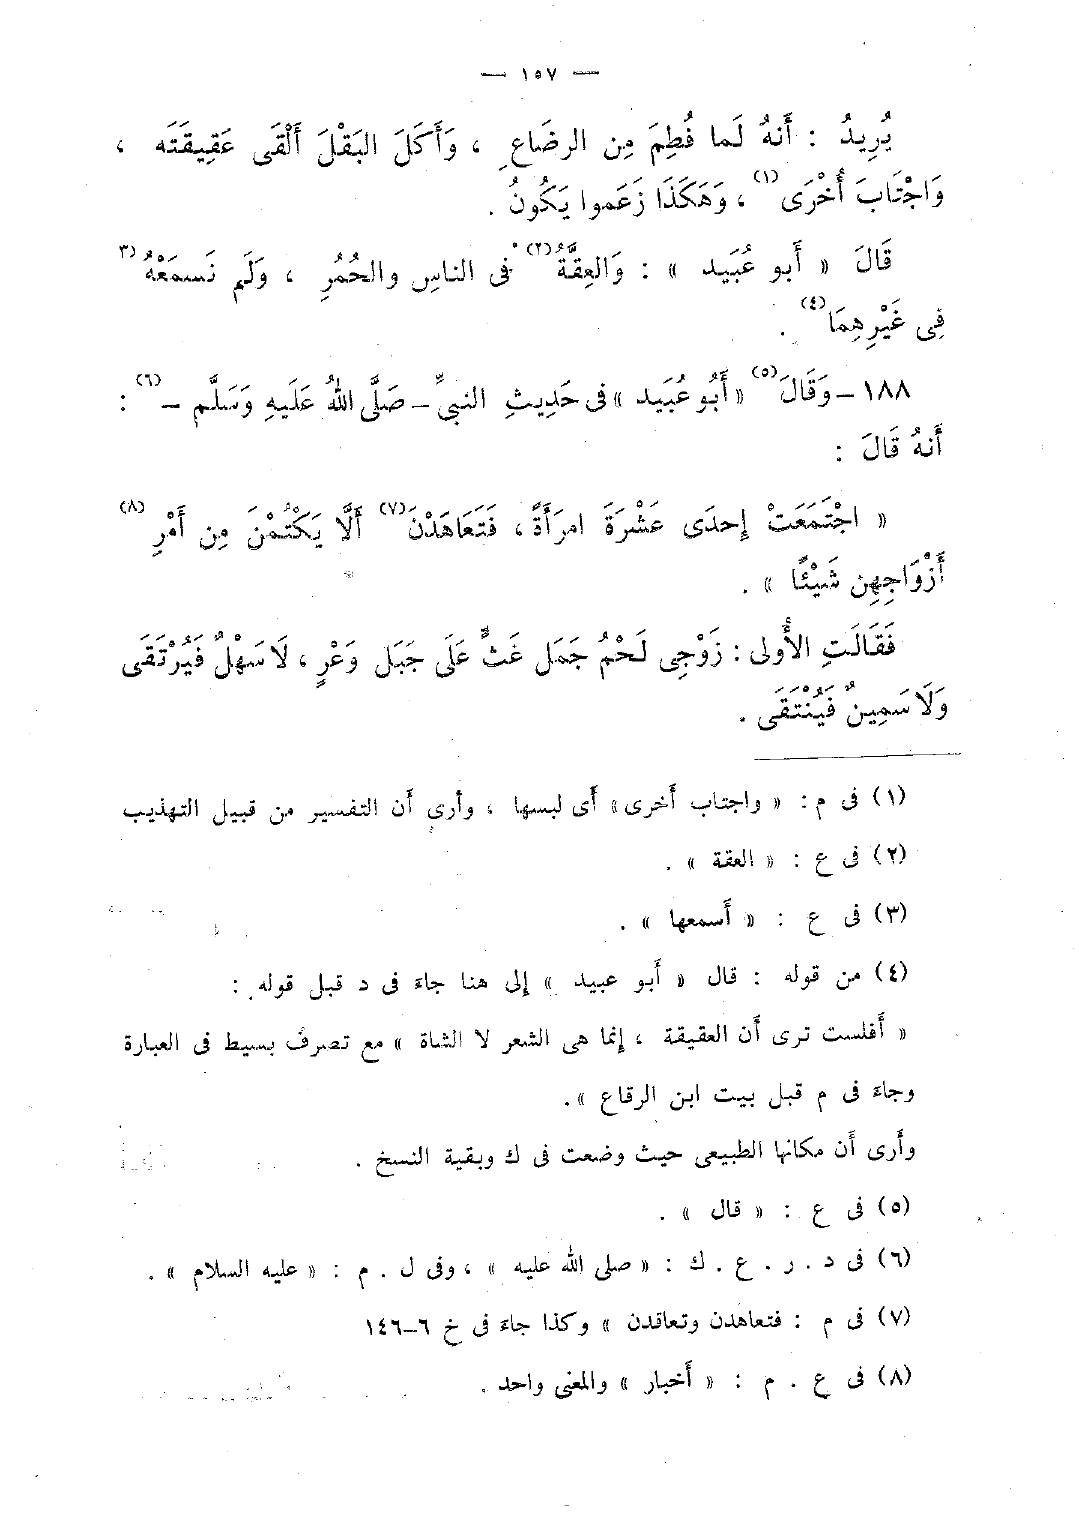 — ١٥٧ —
يُرِيدُ : أَنهُ لَما فُطِمَ مِن الرضَاعِ ، وَأَكَلَ البَقْلَ أَلْقَى عَقِيقَتَه ،
وَاجْتَابَ أُخْرَى (١) ، وَهَكَذَا زَعَموا يَكُونُ .
قَالَ « أَبو عُبَيد » : وَالعِقَّةُ (٢) فى الناسِ والحُمُرِ ، وَلَم نَسمَعْهُ (٣
فِى غَيْرِهِمَا (٤) .
١٨٨ – وَقَالَ (٥) « أَبُو عُبَيد » فى حَدِيثِ النبىِّ – صَلَّى اللهُ عَلَيهِ وَسَلَّم – (٦) :
أَنهُ قَالَ :
« اجْتَمَعَتْ إِحدَى عَشْرَةَ امرَأَةً ، فَتَعَاهَدْنَ (٧) أَلَّا يَكْتُمْنَ مِن أَمْرِ (٨)
أَزْوَاجِهِن شَيْئًا » .
فَقَالَتِ الأُولى : زَوْجِى لَحْمُ جَمَل غَثٌّ عَلَى جَبَل وَعْرٍ ، لَا سَهْلٌ فَيُرْتَقَى
وَلَا سَمِينٌ فَيُنْتَقَى .
(١) فى م : « واجتاب أخرى » أى لبسها ، وأرى أن التفسير من قبيل التهذيب
(٢) فى ع : « العقة » .
(٣) فى ع : « أسمعها » .
(٤) من قوله : قال « أبو عبيد » إلى هنا جاءَ فى د قبل قوله :
« أفلست ترى أن العقيقة ، إنما هى الشعر لا الشاة » مع تصرف بسيط فى العبارة
وجاءَ فى م قبل بيت ابن الرقاع » .
وأرى أن مكانها الطبيعى حيث وضعت فى ك وبقية النسخ .
(٥) فى ع : « قال » .
(٦) فى د . ر . ع . ك : « صلى الله عليه » ، وفى ل . م : « عليه السلام » .
(٧) فى م : فتعاهدن وتعاقدن » وكذا جاءَ فى خ ٦–١٤٦
(٨) فى ع . م : « أخبار » والمعنى واحد .